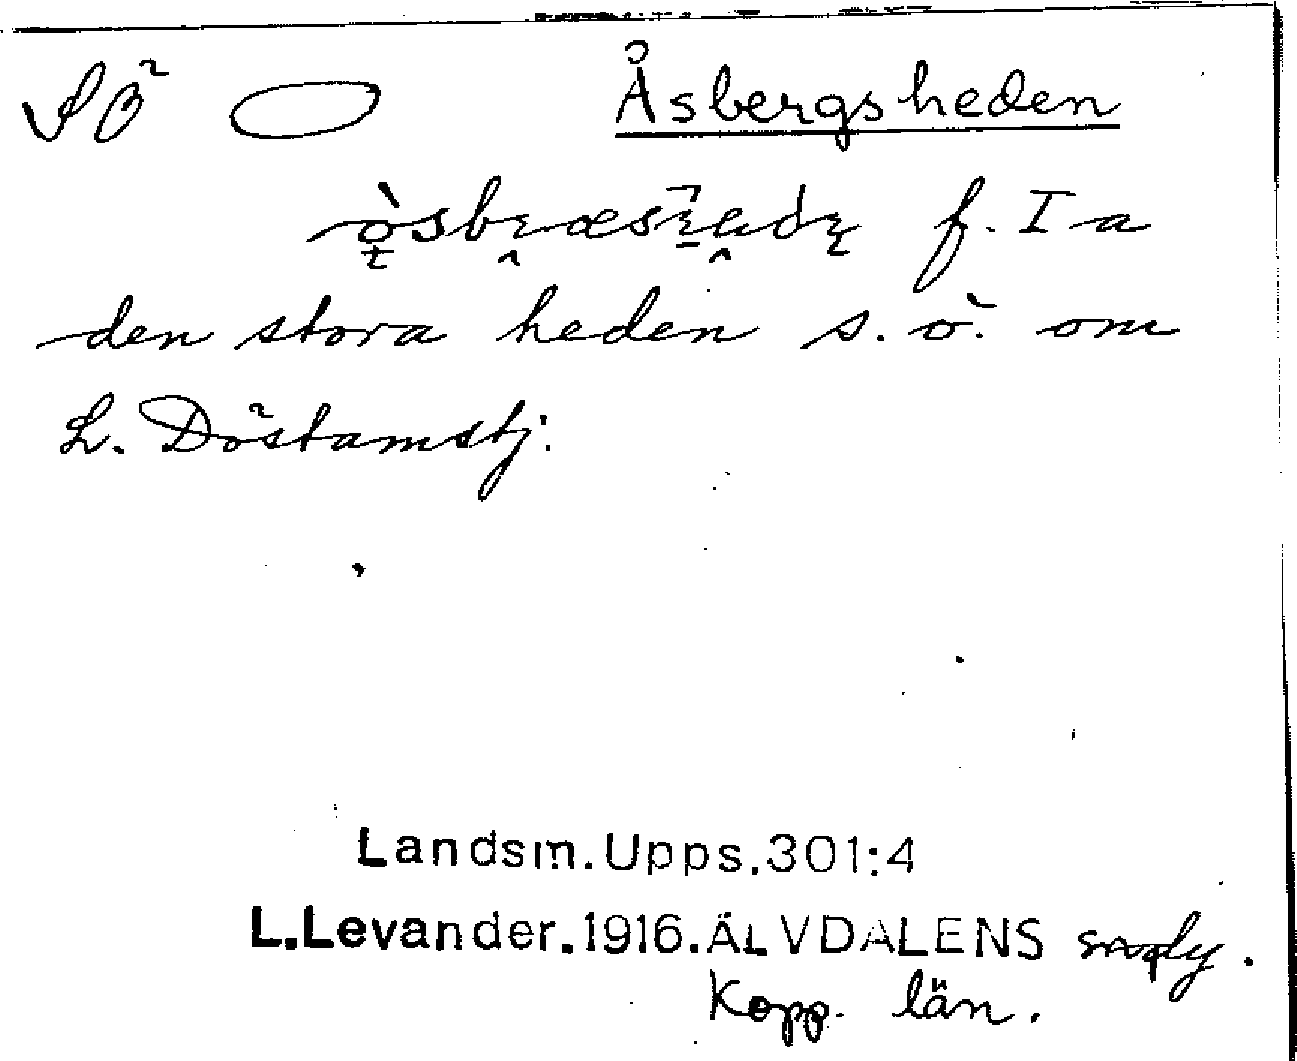 SÖ Åsbergsheden
f. I a
den stora heden s. ö. om
L. Döstamstj.
Landsm.Upps.301:4
L.Levander.1916.ÄLVDALENS
Kopp. län.